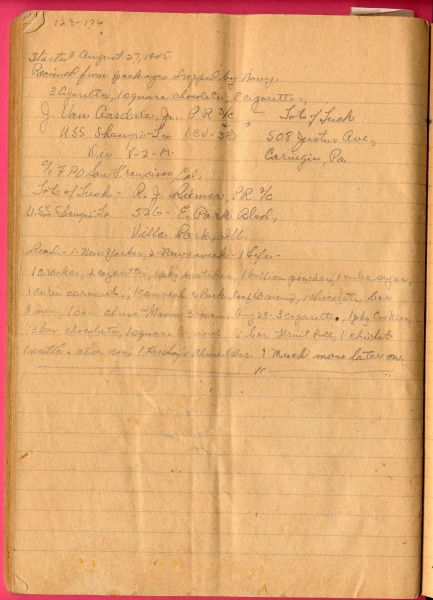 123-176
Started August 27, 1945.
Received from packages dropped by Navy.
3 Cigarettes, 1 square chocolate, 2 cigarettes,
J. Van Arsdale, Jr., P.R. 3/c - Lots of Luck
USS Shangri-La (CV-38) 508 Justus Ave.,
Div V-2-M. Carnegie, Pa
c/o F.P.O. San Francisco Cal.
Lots of Luck - R. J. PR 3/c
U.S.S. Shangri-La 526 - E. Park Blvd.,
Villa Park, Ill.
Read - 1-New Yorker, 2-Newsweek - 1 Life -
1 cracker, 2 cigarettes, 1 pkg matches, 1 powder, 1 cube sugar,
1 cube caramel, 1 can veal & Pork loaf (3 men), 1 chocolate bar
3 men, 1 can cheese Aug 28 - 3 cigarettes, 1 pkg Cookies,
chocolate, 1 square caramel, 1/2 bar Fruit Roll, 1 chiclet
1 nestle - choc 1 Hershey's Almond Bar. ! Much more later on
"